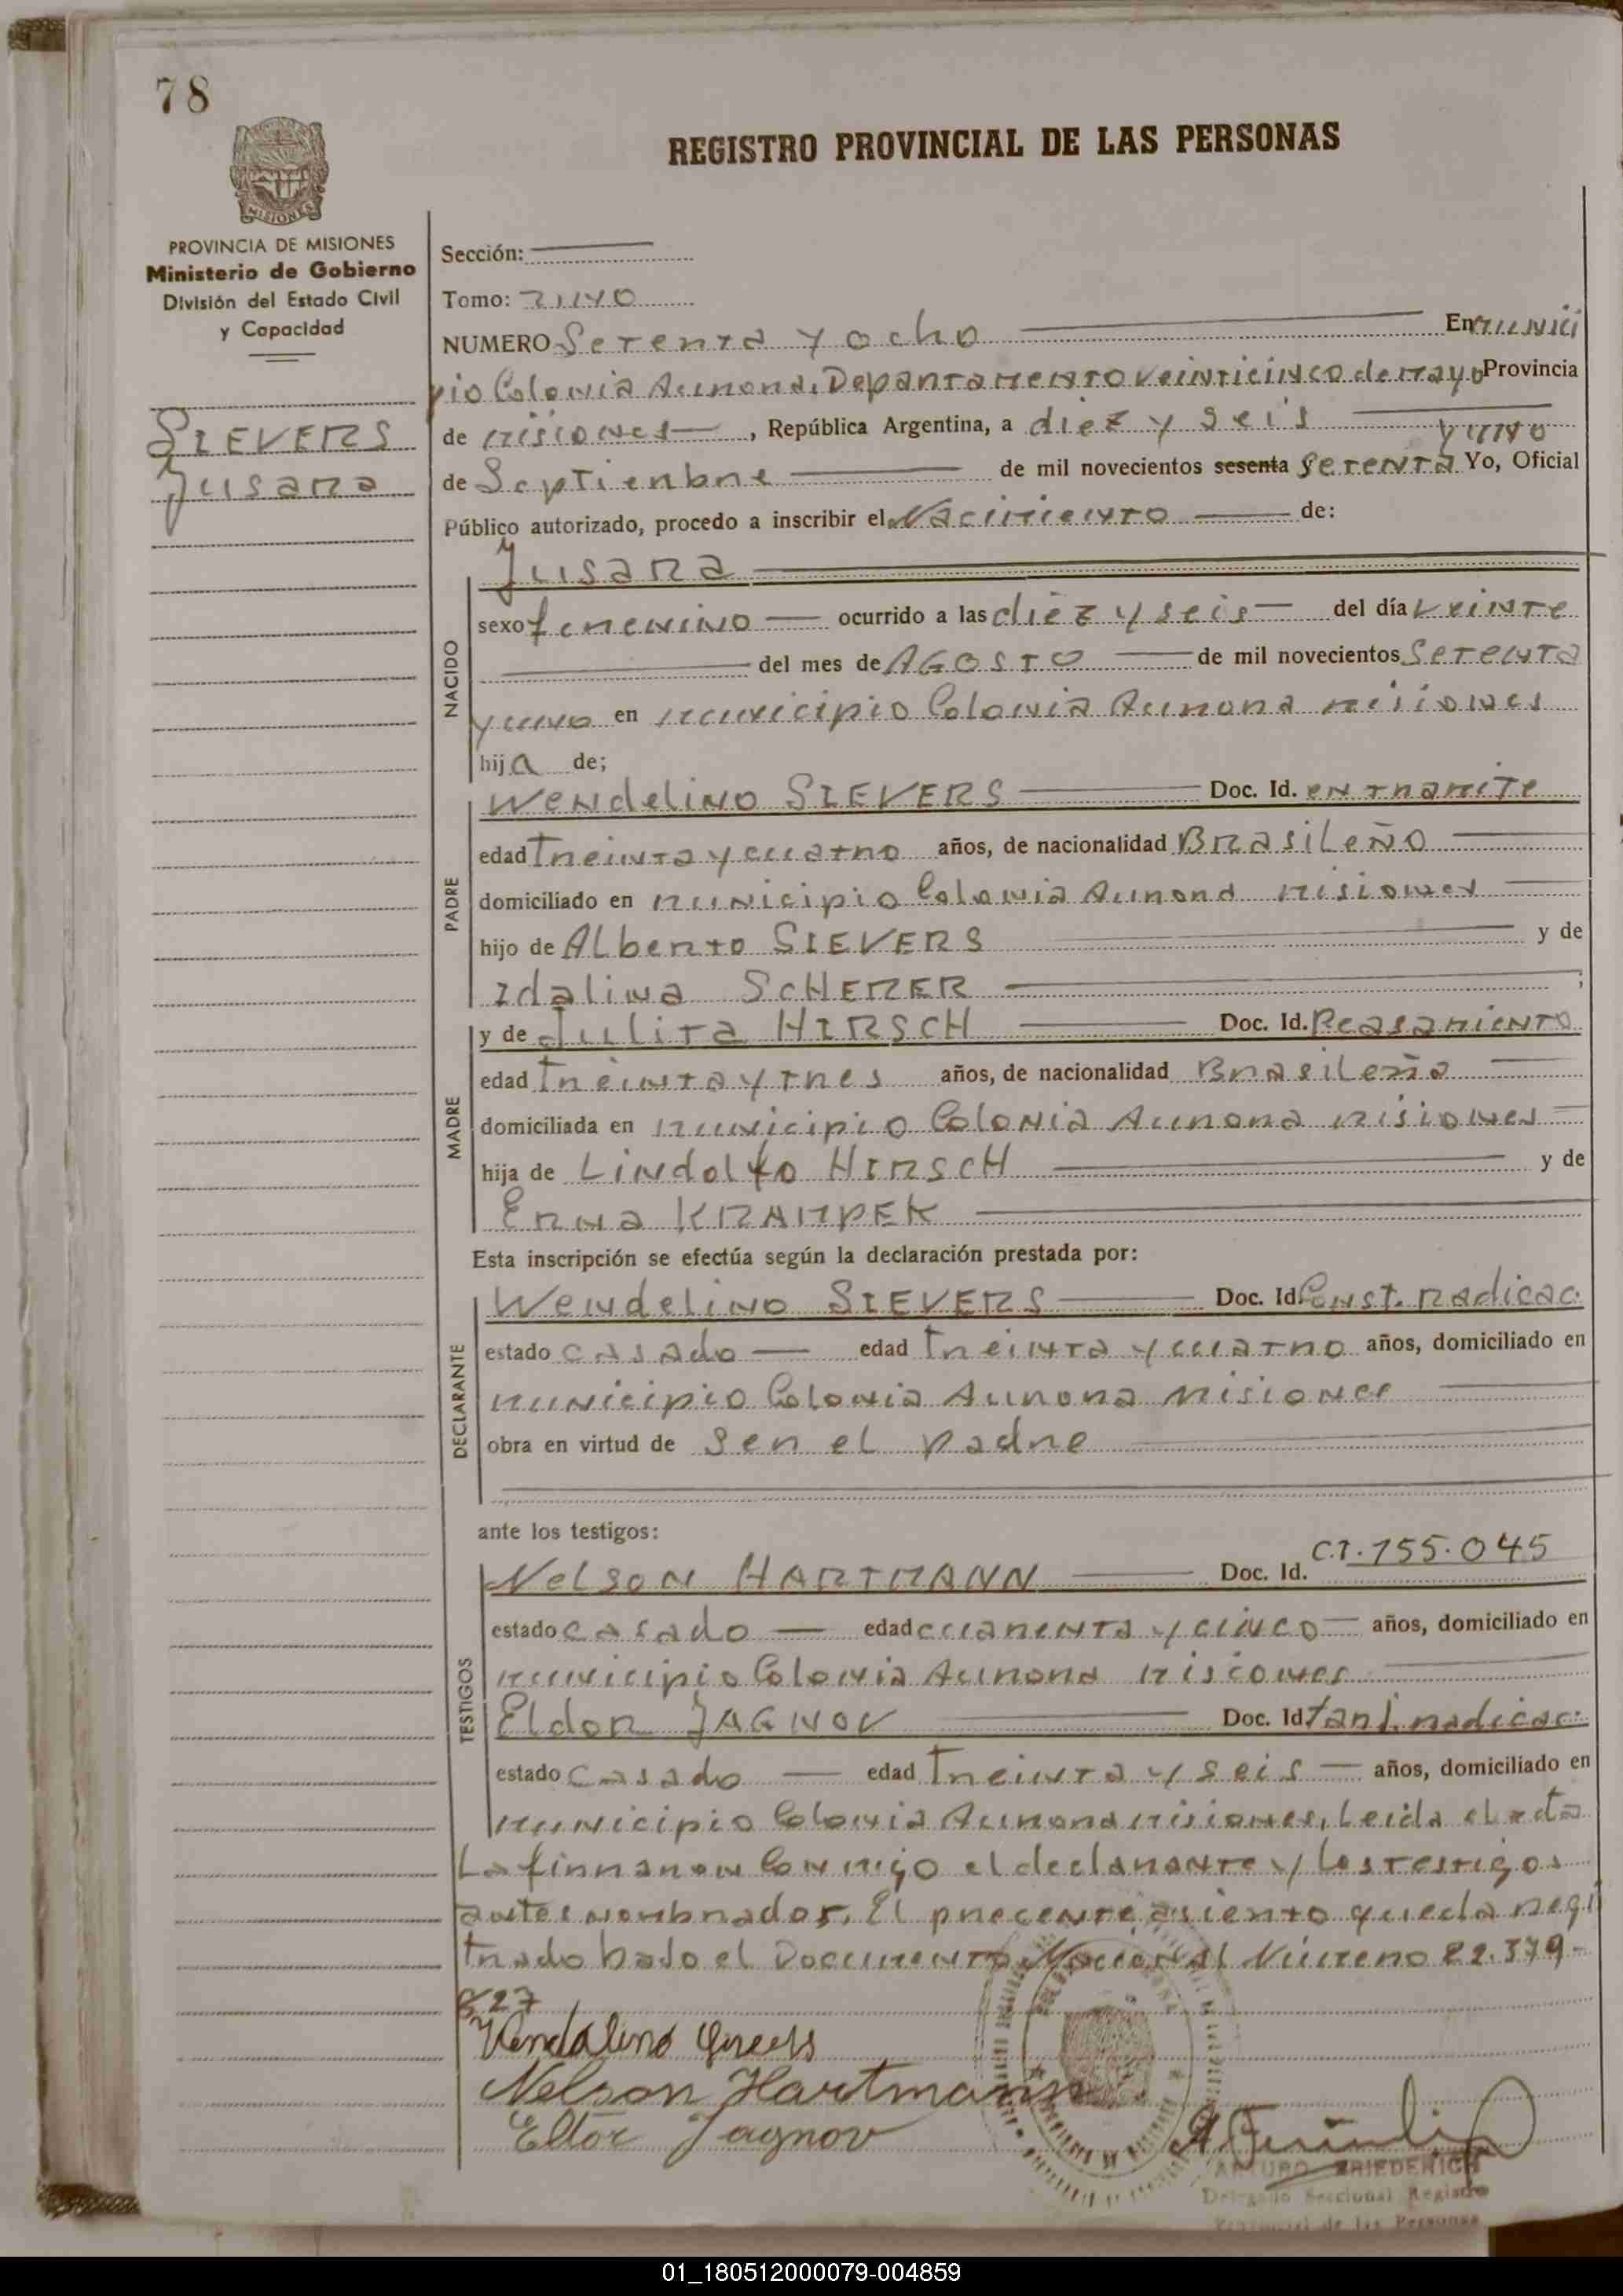 78
REGISTRO PROVINCIAL DE LAS PERSONAS
MISIONES
PROVINCIA DE MISIONES
Ministerio de Gobierno
División del Estado Civil
y Capacidad
SIEVERS
Jusara
Sección:
Tomo: 21140
NUMERO Setenta y ocho En Munici
pio Colonia Aurora, Departamento Veinticinco de Mayo Provincia
de Misiones, República Argentina, a diez y seis
y uno
de Septienbre de mil novecientos sesenta setenta Yo, Oficial
Público autorizado, procedo a inscribir el Nacimiento de:
Jusara
NACIDO
sexo femenino ocurrido a las diez y seis del día veinte
del mes de AGOSTO de mil novecientos setenta
y uno en Municipio Colonia Aurora Misiones
hija de;
PADRE
Wendelino SIEVERS Doc. Id. en tramite
edad Treinta y cuatro años, de nacionalidad Brasileño
domiciliado en Municipio Colonia Aurora Misiones
hijo de Alberto SIEVERS y de
Idalina SCHERER ;
MADRE
y de Julita HIRSCH Doc. Id.
edad Treinta y tres años, de nacionalidad Brasileña
domiciliada en Municipio Colonia Aurora Misiones
hija de Lindolfo HIRSCH y de
Erna KRAMPEK
Esta inscripción se efectúa según la declaración prestada por:
DECLARANTE
Wendelino SIEVERS Doc. Id. Const. Radicac.
estado casado edad Treinta y cuatro años, domiciliado en
Municipio Colonia Aurora Misiones
obra en virtud de ser el padre
ante los testigos:
TESTIGOS
Nelson HARTMANN Doc. Id. C.I. 155.045
estado casado edad cuarenta y cinco años, domiciliado en
Municipio Colonia Aurora Misiones
Eldor JAGNOV Doc. Id. Tarj. radicac.
estado casado edad Treinta y seis años, domiciliado en
Municipio Colonia Aurora Misiones, Leida el acta
La firmaron Conmigo el declarante y Los testigos
antes nombrados. El precente asiento queda regi
trado bado el Documento Nacional Número 22.379-
827
Nelson Hartmann
Eltor Jagnov
ARTURO FRIEDERICH
Delegado Seccional Registro
Provincial de las Personas
01_180512000079-004859